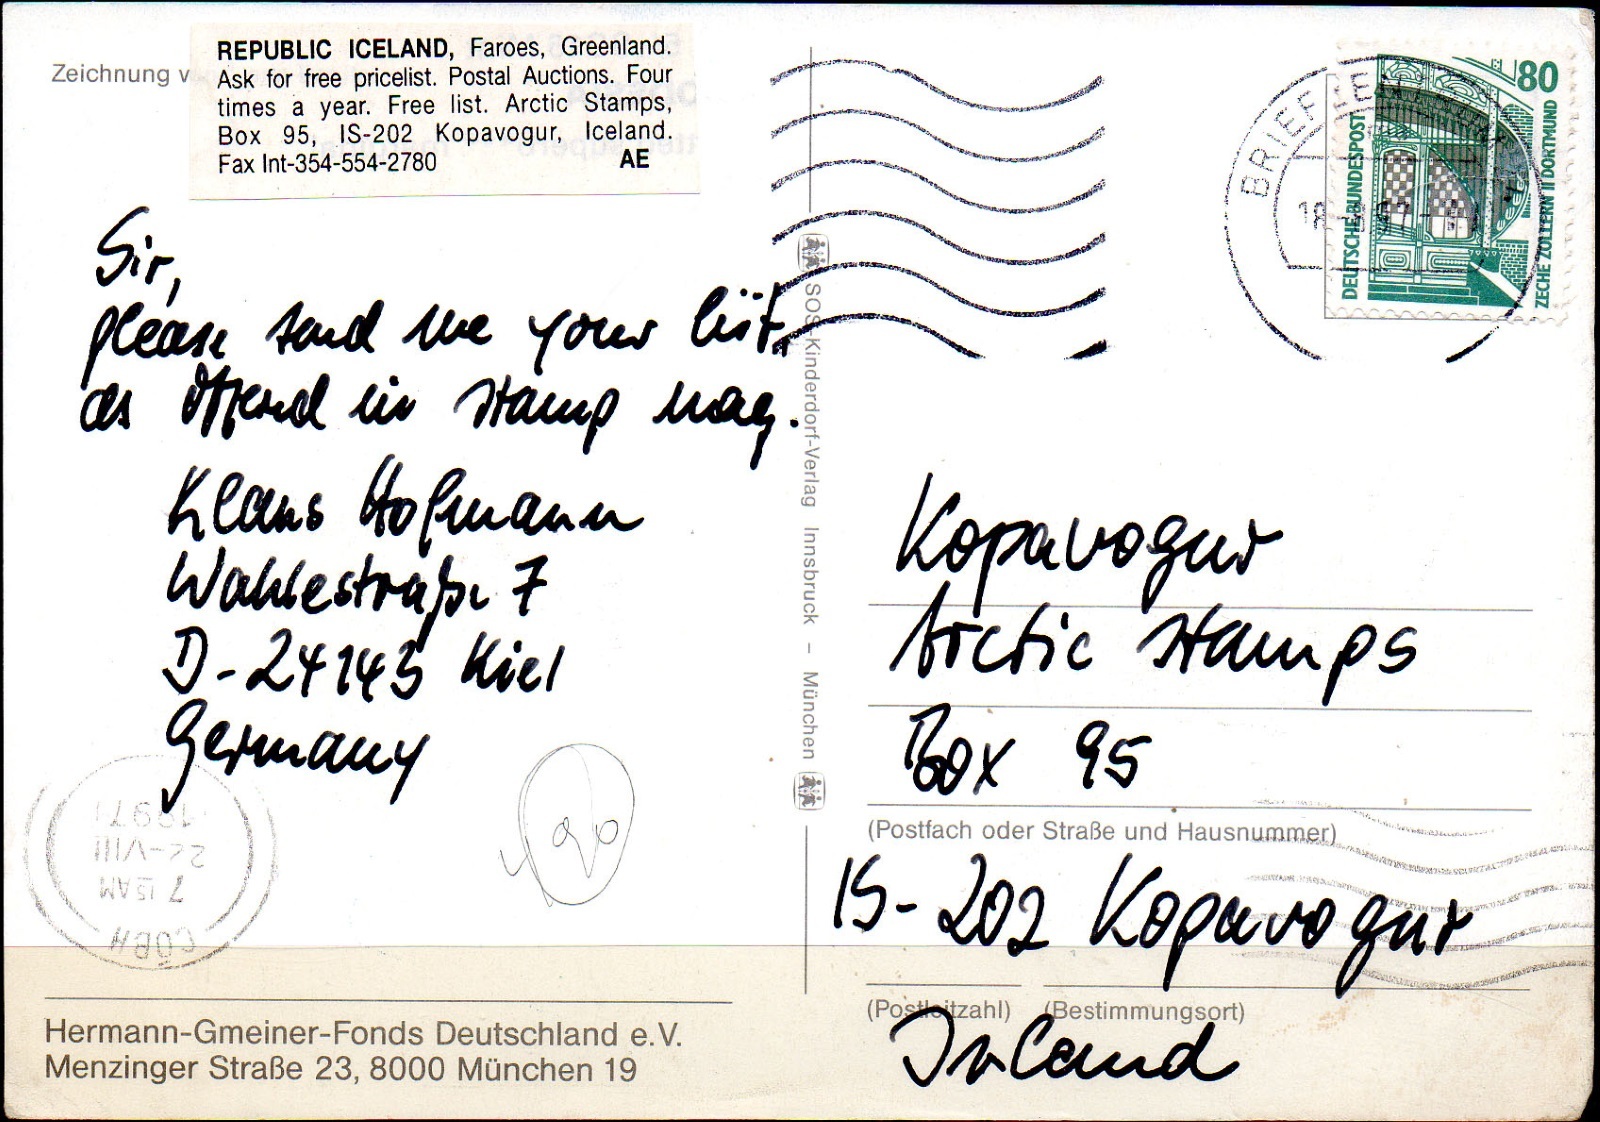 Zeichnung v
REPUBLIC ICELAND, Faroes, Greenland.
Ask for free pricelist. Postal Auctions. Four
times a year. Free list. Arctic Stamps,
Box 95, IS-202 Kopavogur, Iceland.
Fax Int-354-554-2780 AE
Sir,
please send me your list,
as offered in stamp mag.
Klaus Hofmann
Wahlestraße 7
D-24143 Kiel
Germany
7 15 AM
VIII
1997
COBH
Hermann-Gmeiner-Fonds Deutschland e.V.
Menzinger Straße 23, 8000 München 19
SOS-Kinderdorf-Verlag Innsbruck – München
BRIEF
80
DEUTSCHE BUNDESPOST
ZECHE ZOLLERN II DORTMUND
Kopavogur
Arctic stamps
Box 95
(Postfach oder Straße und Hausnummer)
IS-202 Kopavogur
(Postleitzahl) (Bestimmungsort)
Irland